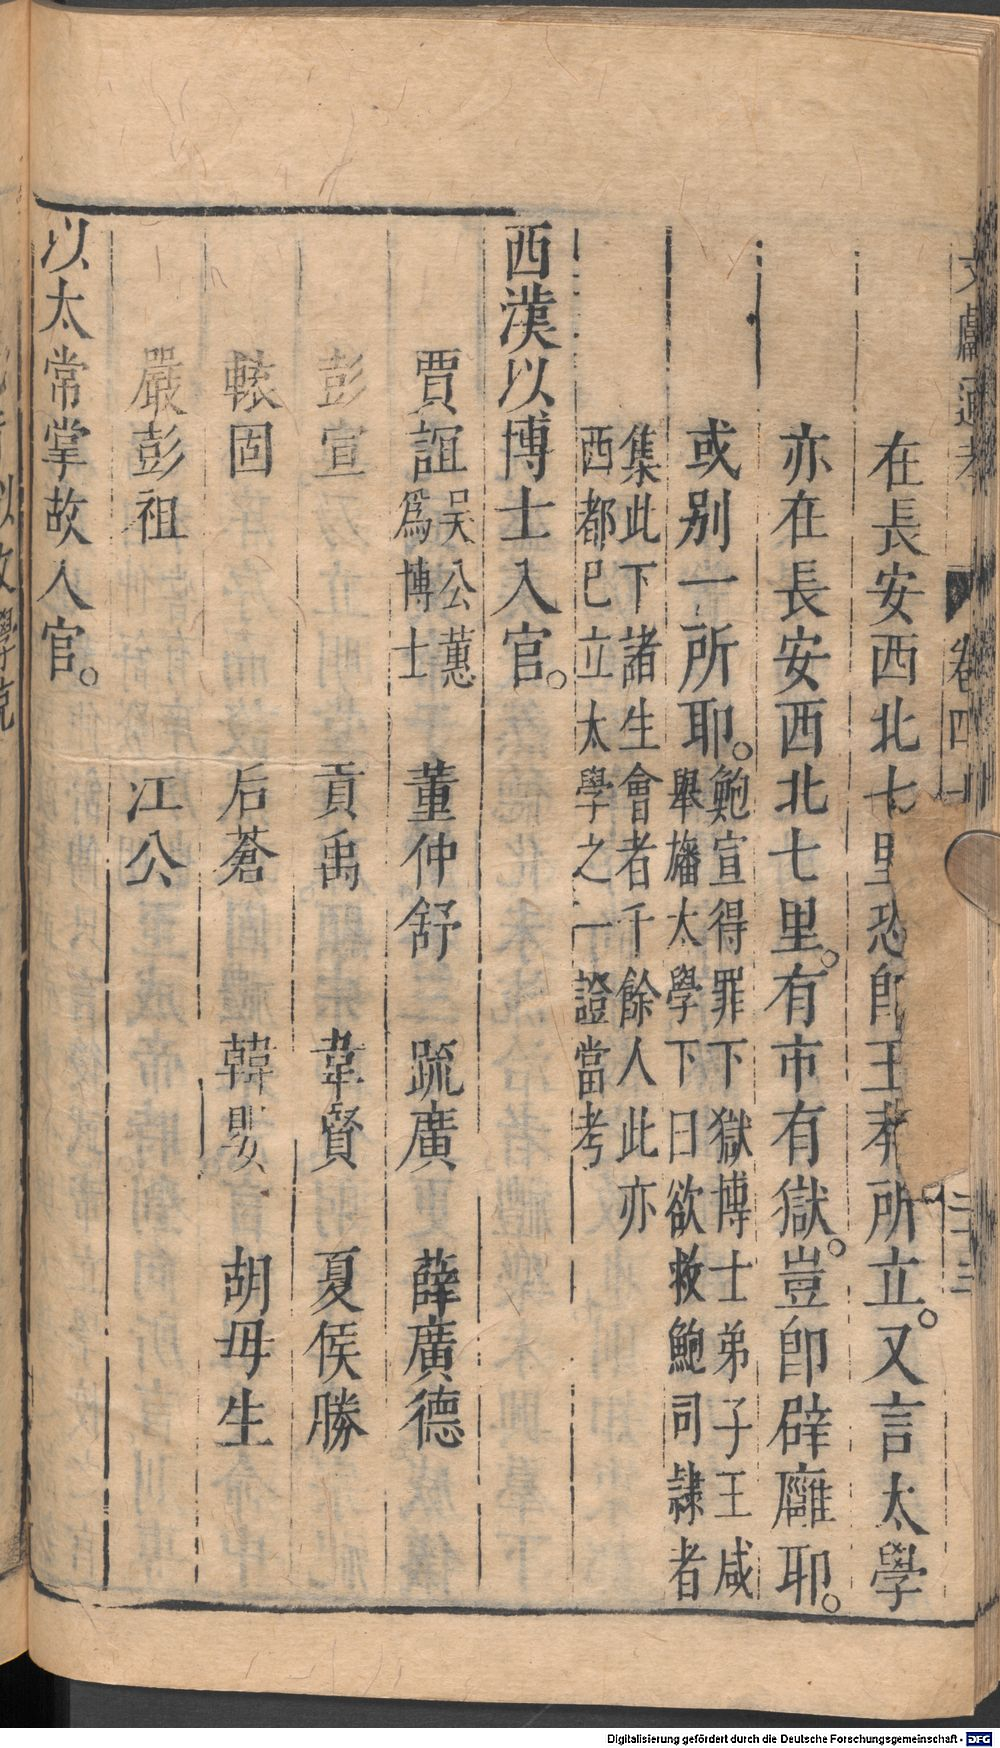 文獻通考 卷四十 二十三
在長安西北七里恐卽王莽所立。又言太學
亦在長安西北七里。有市有獄。豈卽辟廱耶。
或别一所耶。鮑宣得罪下獄博士弟子王咸
舉旛太學下曰欲救鮑司隷者
集此下諸生會者千餘人此亦
西都已立太學之一證當考
西漢以博士入官。
賈誼吳公薦爲博士 董仲舒 䟽廣 薛廣德
彭宣 貢禹 韋賢 夏侯勝
轅固 后蒼 韓嬰 胡毋生
嚴彭祖 江公
以太常掌故入官。
Digitalisierung gefördert durch die Deutsche Forschungsgemeinschaft - DFG